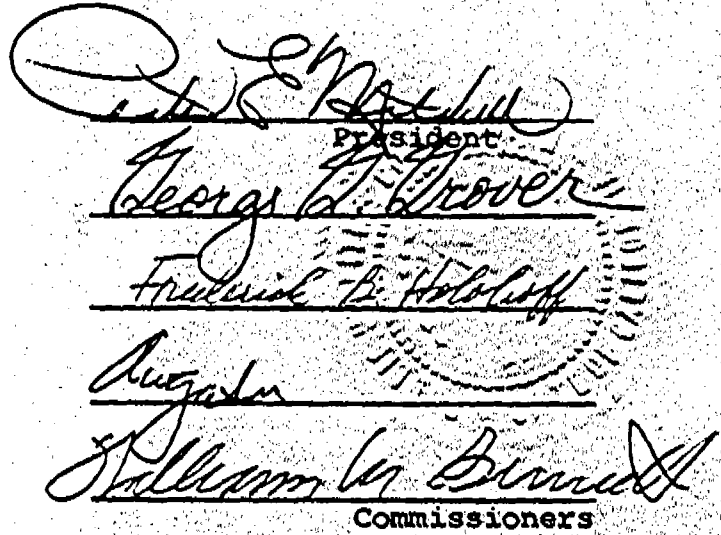 Peter E Mitchell
President
George G. Grover
Frederick B. Holoboff
William M Bennett
Commissioners